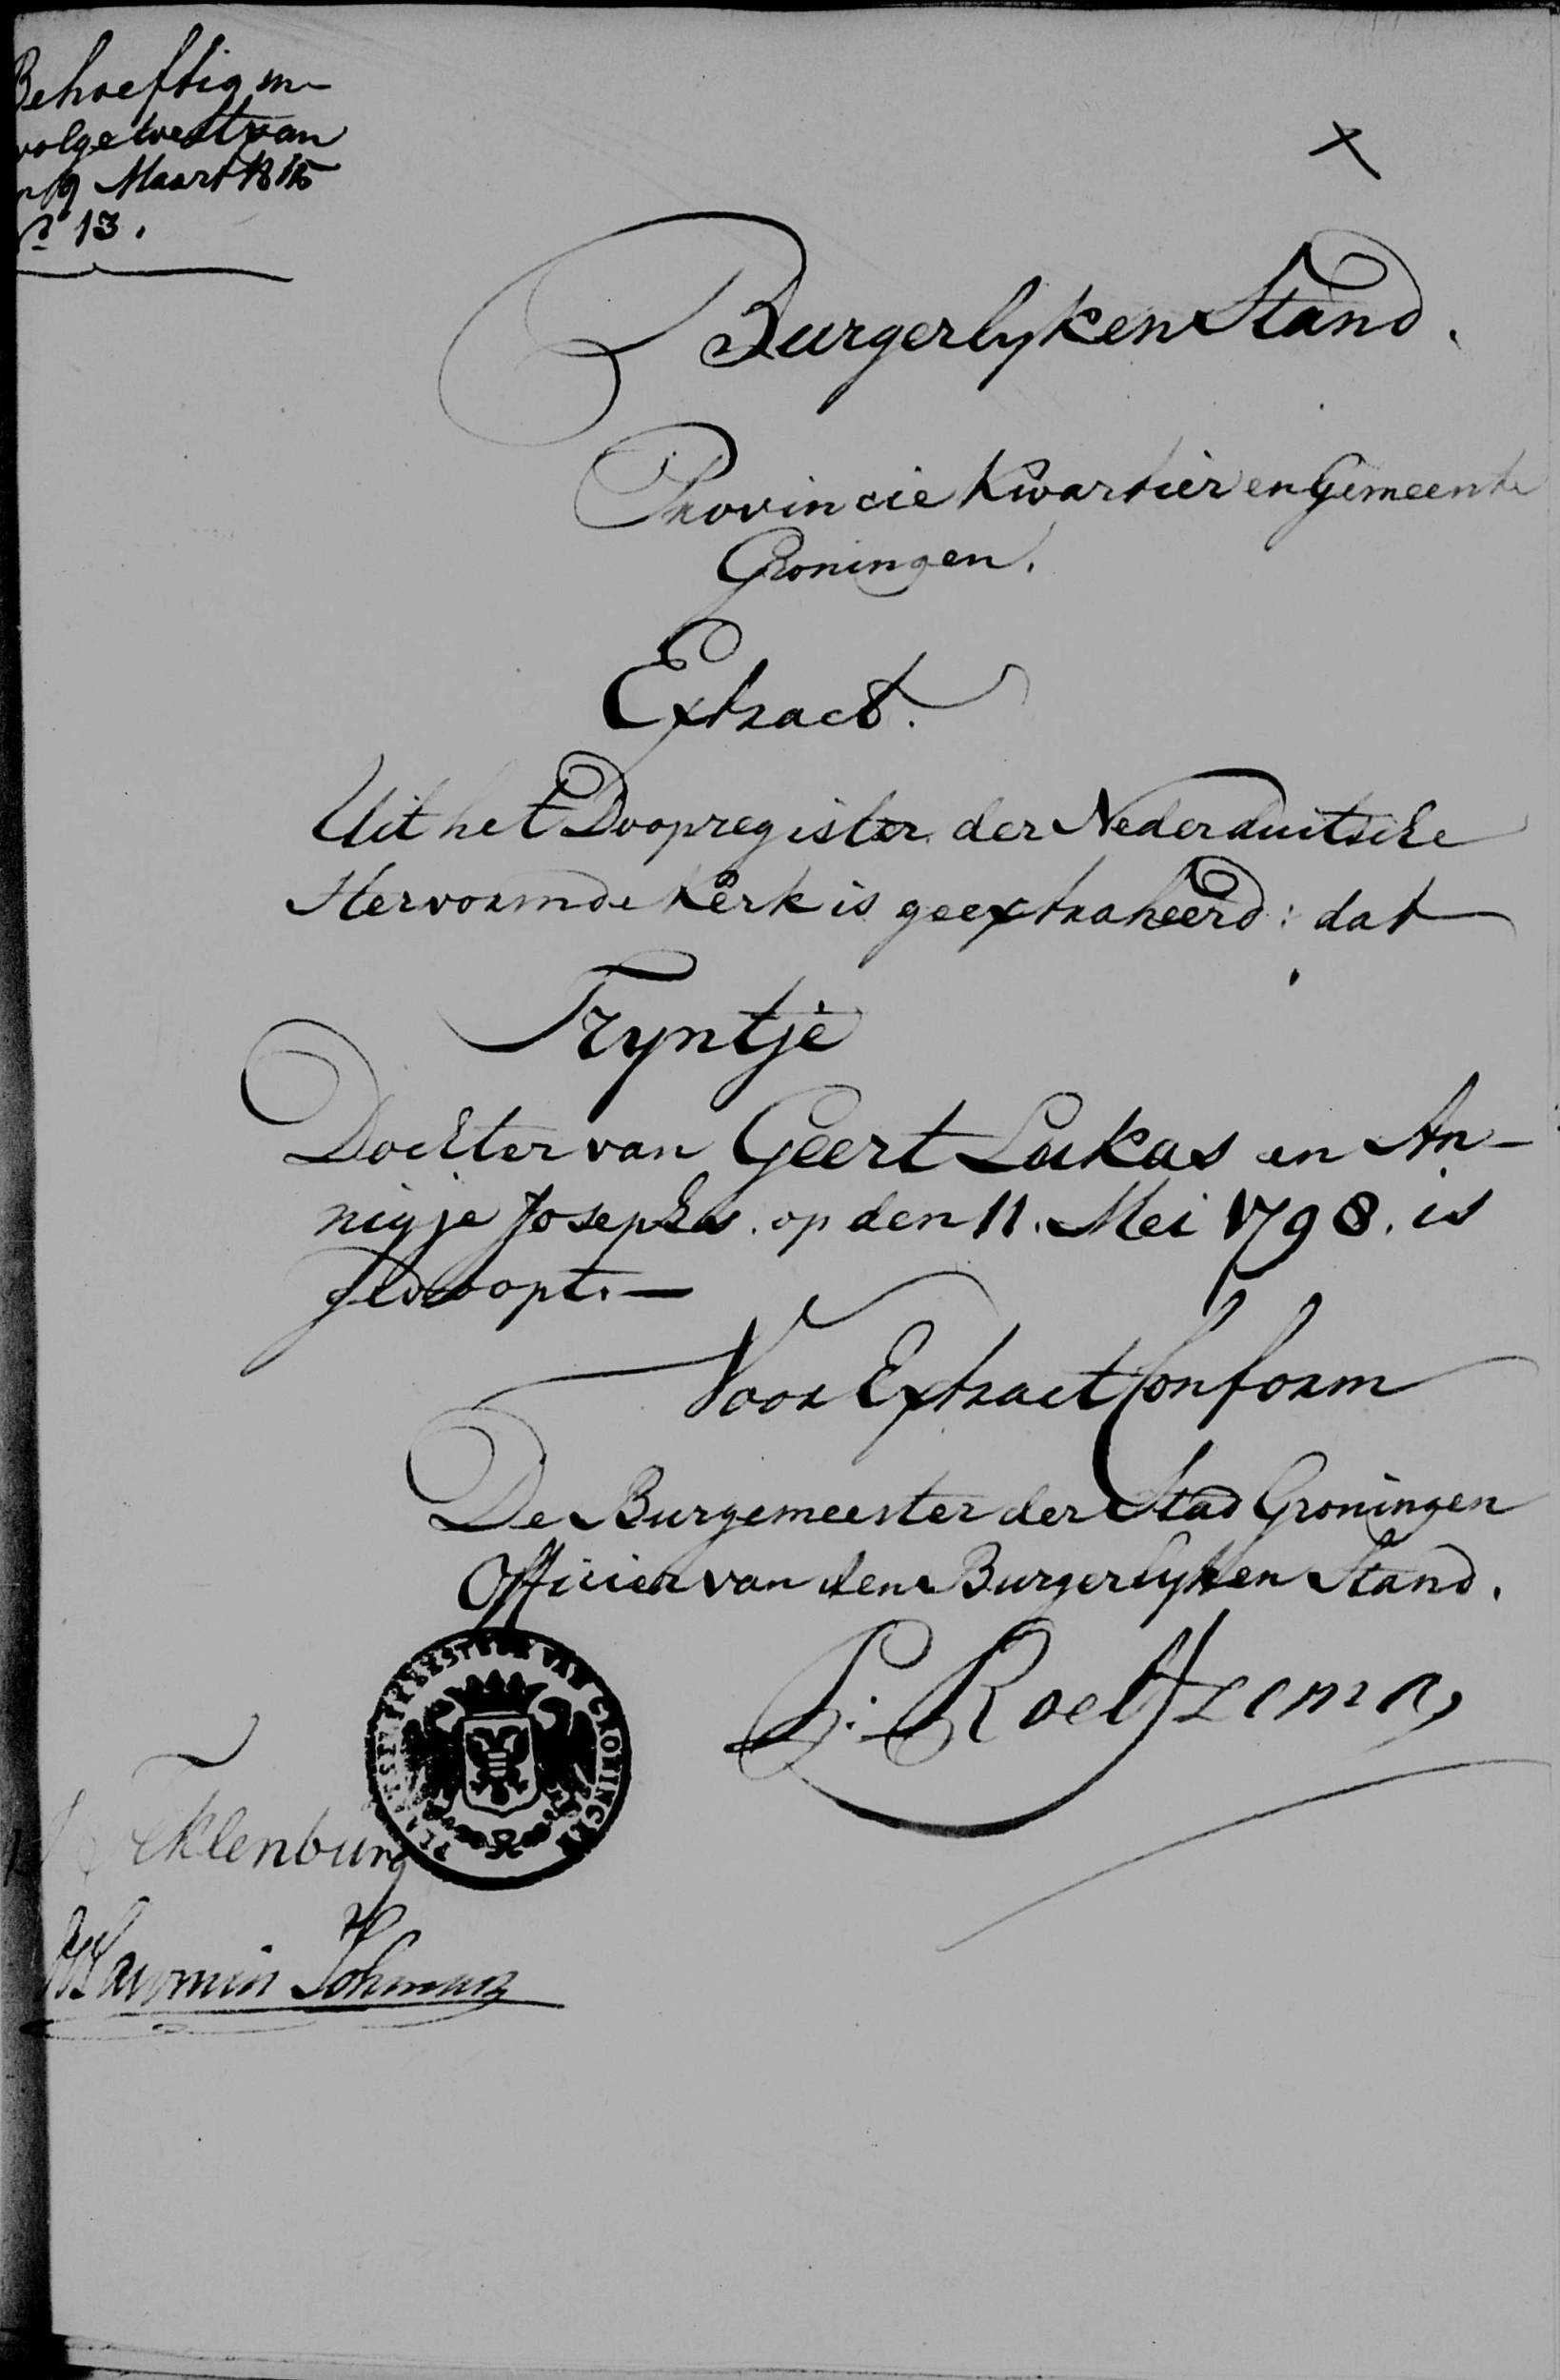 Behoeftig in
volge wet van
9 Maart 1815
No 13.
Burgerlyken Stand.
Provincie Kwartier en Gemeente
Groningen.
Extract.
Uit het Doopregister der Nederduitsche
Hervormde Kerk is geextraheerd: dat
Tryntje
Dochter van Geert Lukas en An-
nigje Josephs. op den 11. Mei 1798. is
gedoopt.—
Voor Extract Conform
De Burgemeester der Stad Groningen
Officier van den Burgerlyken Stand.
PLAATSELYK BESTUUR VAN GRONINGEN
Roelfzema
Teklenburg